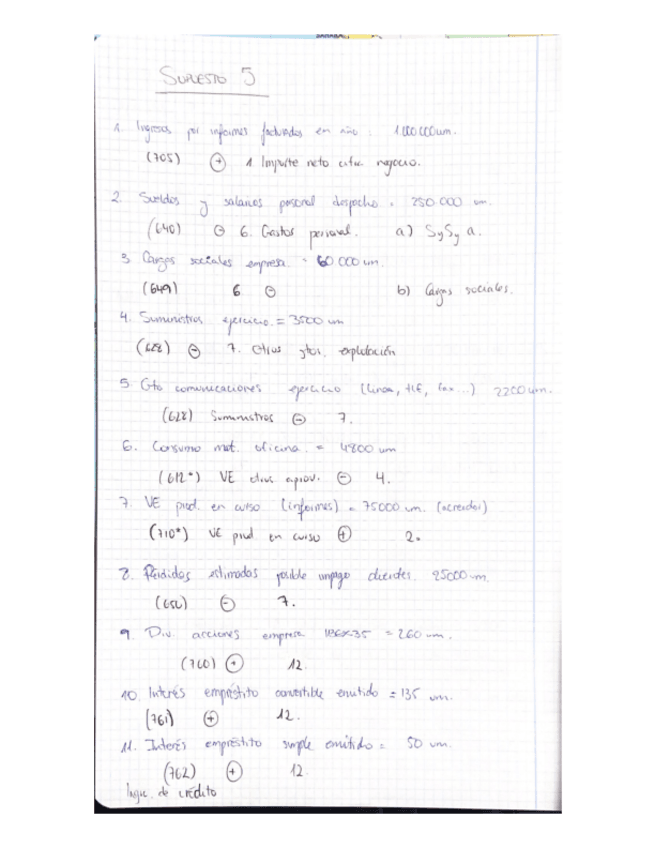 SUPUESTO 5
1. Ingresos por informes facturados en año: 1000000um.
(705) + 1 Importe neto cifra negocio.
2. Sueldos y salarios personal despacho = 250.000 um.
(640) - 6. Gastos personal. a) SyS y a.
3. Cargas sociales empresa = 60 000 um.
(649) 6 - b) Cargas sociales.
4. Suministros ejercicio = 3500 um
(628) - 7. Otros gtos. explotación
5. Gto comunicaciones ejercicio (línea, tlf, fax...) 2200um.
(628) Suministros - 7.
6. Consumo mat. oficina = 4800 um
(612*) VE otros aprov. - 4.
7. VE prod. en curso (informes) = 75000 um. (acreedor)
(710*) VE prod en curso + 2.
8. Pérdidas estimadas posible impago clientes. 25000um.
(650) - 7.
9. Div. acciones empresa = 260 um.
(760) + 12.
10. Interés empréstito convertible emitido = 135 um.
(761) + 12.
11. Interés empréstito simple emitido = 50 um.
(762) + 12.
de crédito